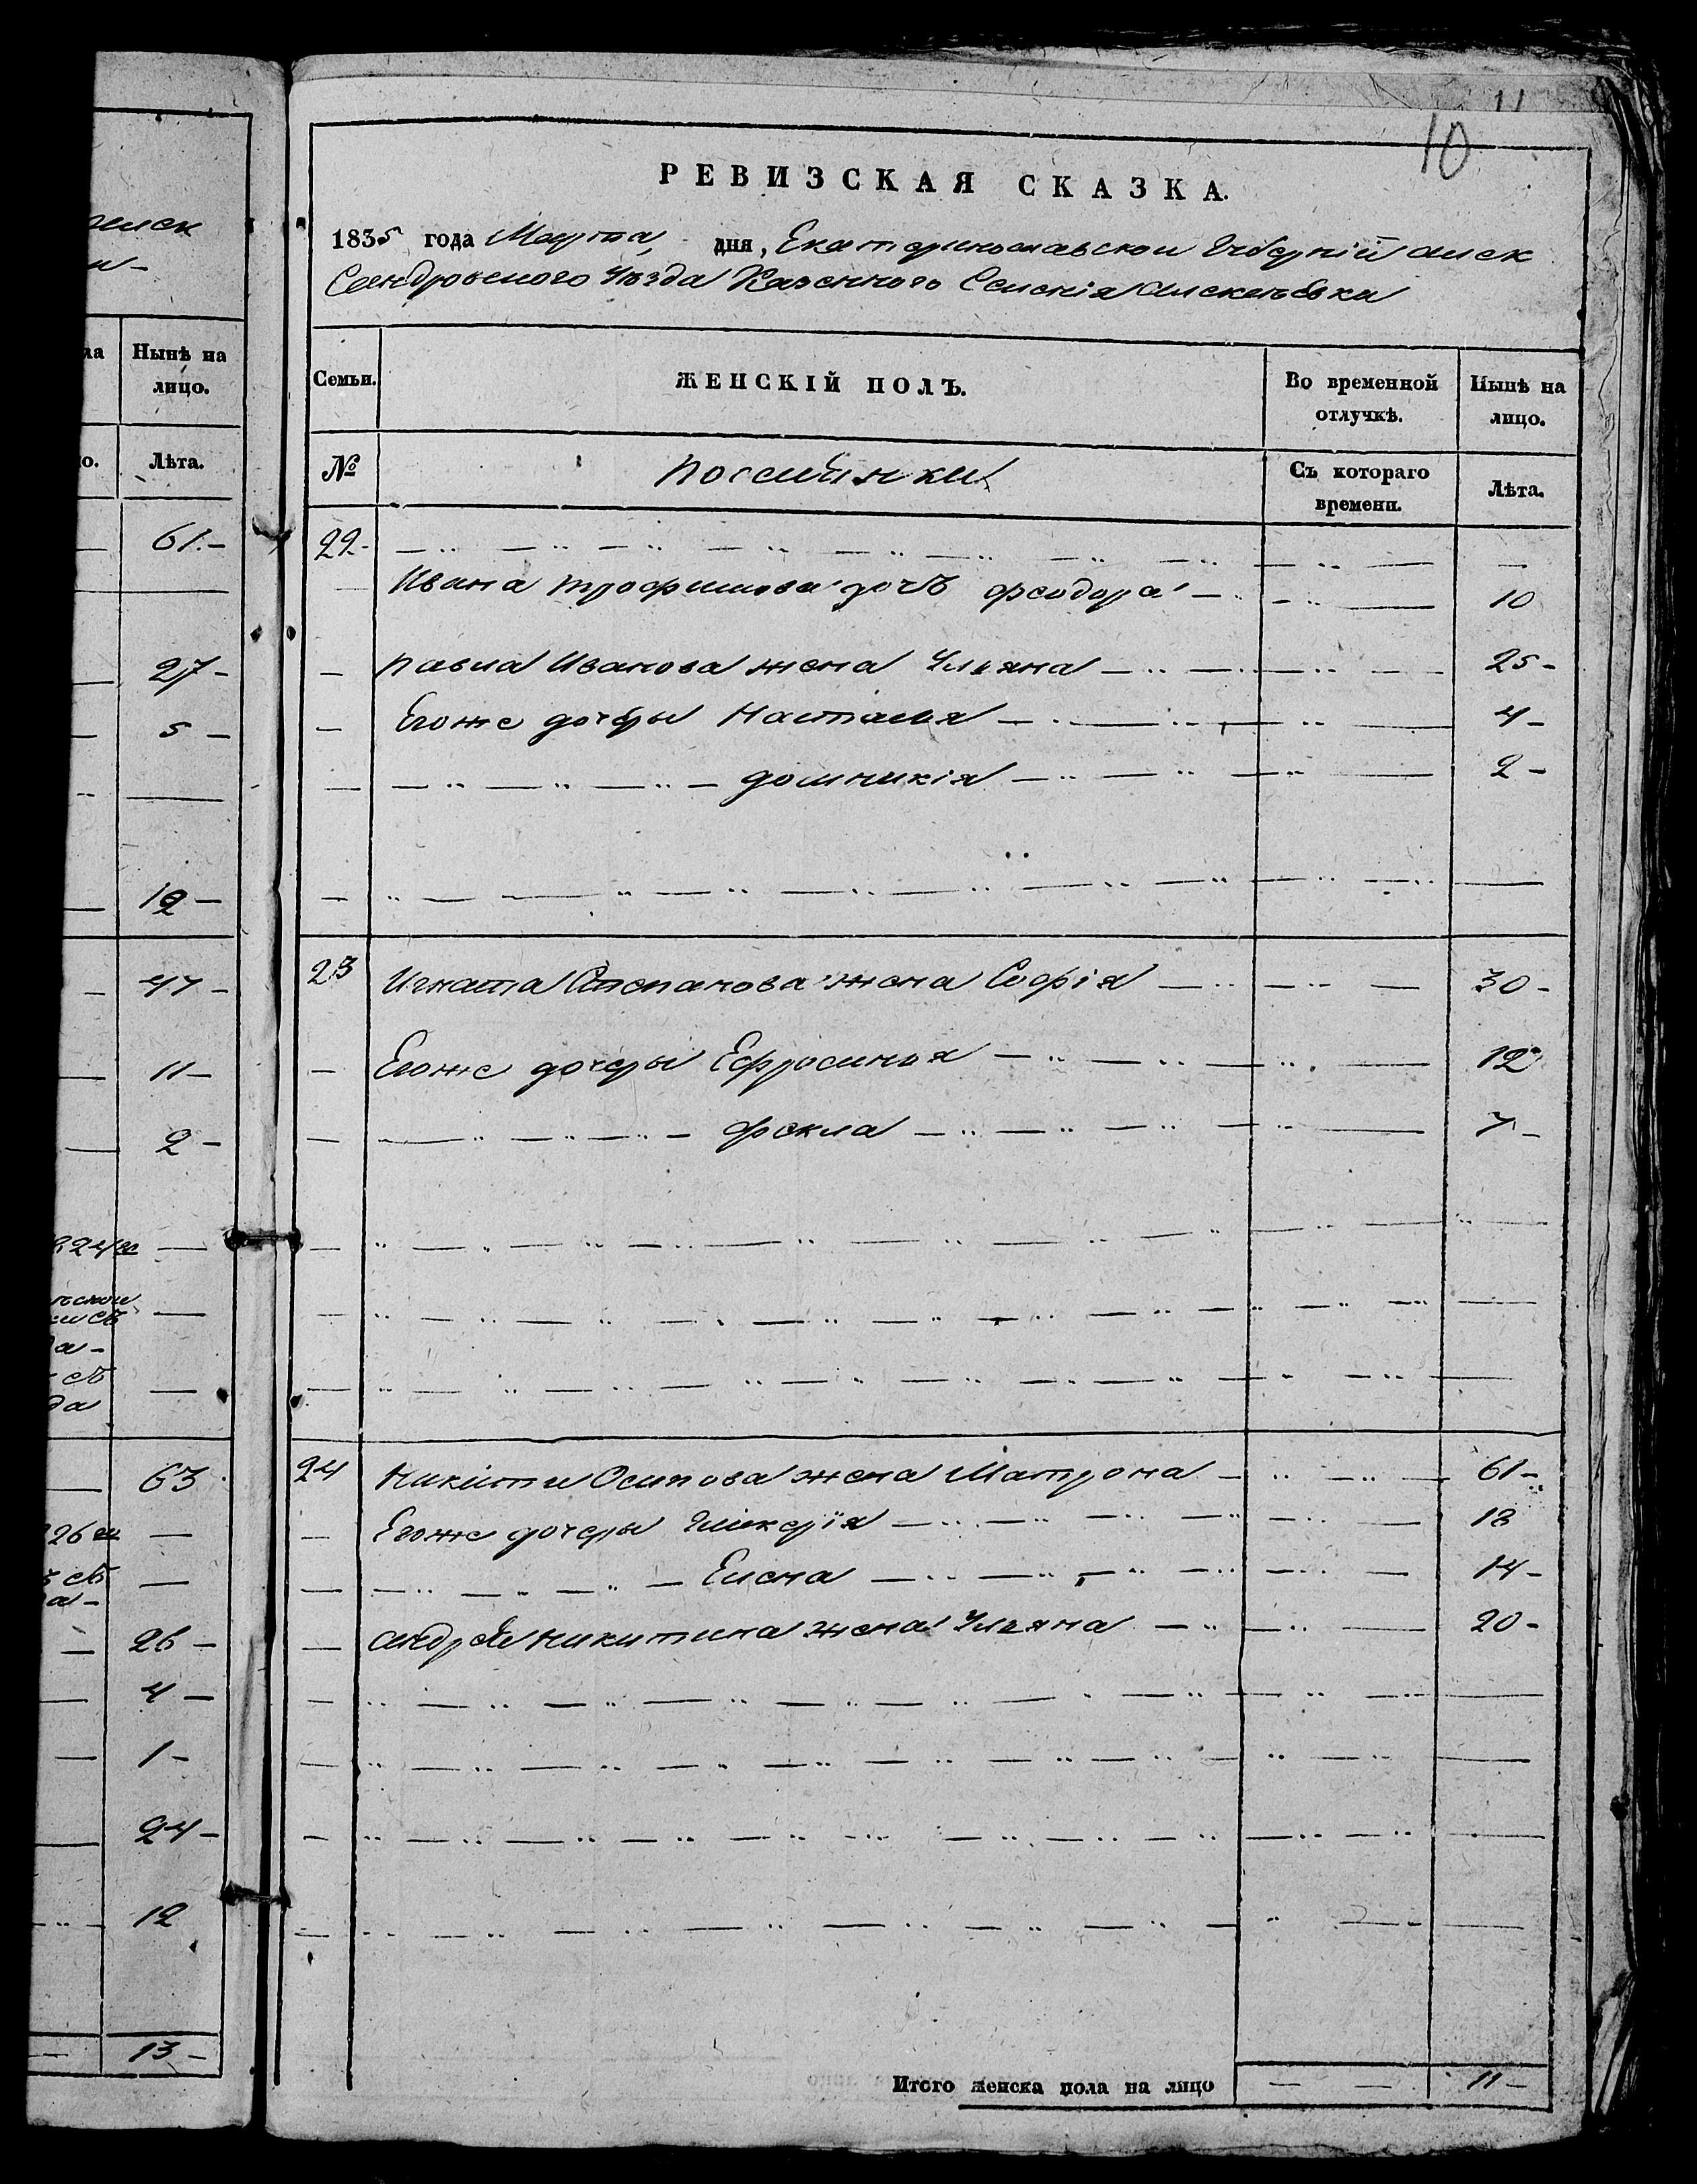 11
10
РЕВИЗСКАЯ СКАЗКА.
1835 года Марта, дня, Екатеринославской Губерній Алек
Сандровского Уѣзда Казенного Селенія Алексеевки
Семьи. ЖЕНСКІЙ ПОЛЪ. Во временной отлучкѣ. Нынѣ на лицо.
№ Съ котораго времени. Лѣта.
22-
Ивана Трофимова дочь Феодора 10
Павла Иванова жена Ульяна 25-
Егоже дочеры Наталья 4-
домникія 2-
23 Игната Степанова жена Софія 30-
Егоже дочеры Ефросинья 12
Фекла 7-
24 Никиты Осипова жена Матрона 61-
Егоже дочеры Гликерія 18
Елена 14-
Андрея Никитина жена Ульяна 20-
Итого женска пола на лицо 11-
Нынѣ на
лицо.
Лѣта.
61.-
27-
5-
12-
47-
11-
2-
63
26-
4-
1-
24-
12
13-